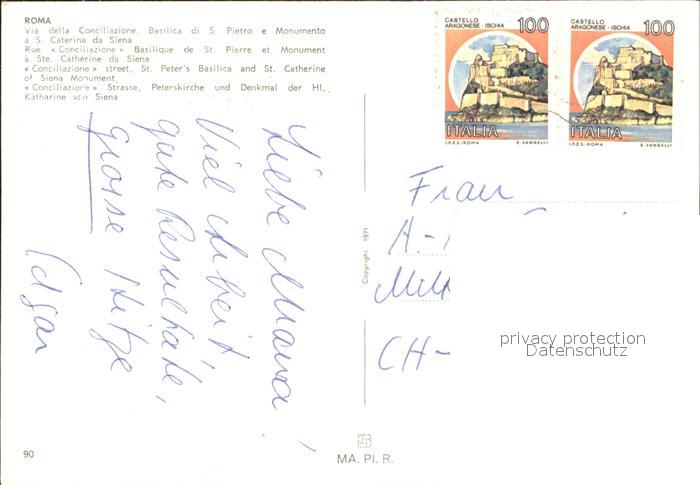 ROMA
Via della Conciliazione, Basilica di S. Pietro e Monumento
a S. Caterina da Siena
Rue « Conciliazione » Basilique de St. Pierre et Monument
à Ste. Cathérine da Siena
« Conciliazione » street, St. Peter's Basilica and St. Catherine
of Siena Monument
« Conciliazione » Strasse, Peterskirche und Denkmal der Hl.
Katharine von Siena
CASTELLO
ARAGONESE - ISCHIA
100
ITALIA
I.P.Z.S. - ROMA E. VANGELLI
CASTELLO
ARAGONESE - ISCHIA
100
ITALIA
I.P.Z.S. - ROMA E. VANGELLI
Liebe Mama!
Viel Arbeit,
gute Resultate,
grosse Hitze
Edgar
Copyright 1971
Frau
A-
CH-
privacy protection
Datenschutz
90
MA. PI. R.